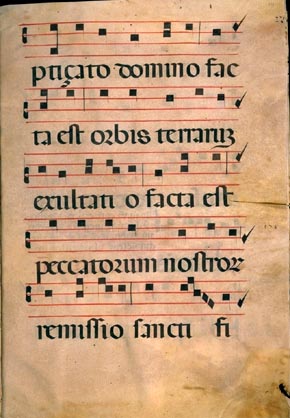 ptiçato domino fac
ta est orbis terraruz
exultati o facta est
peccatorum nostror
remissio sancti fi